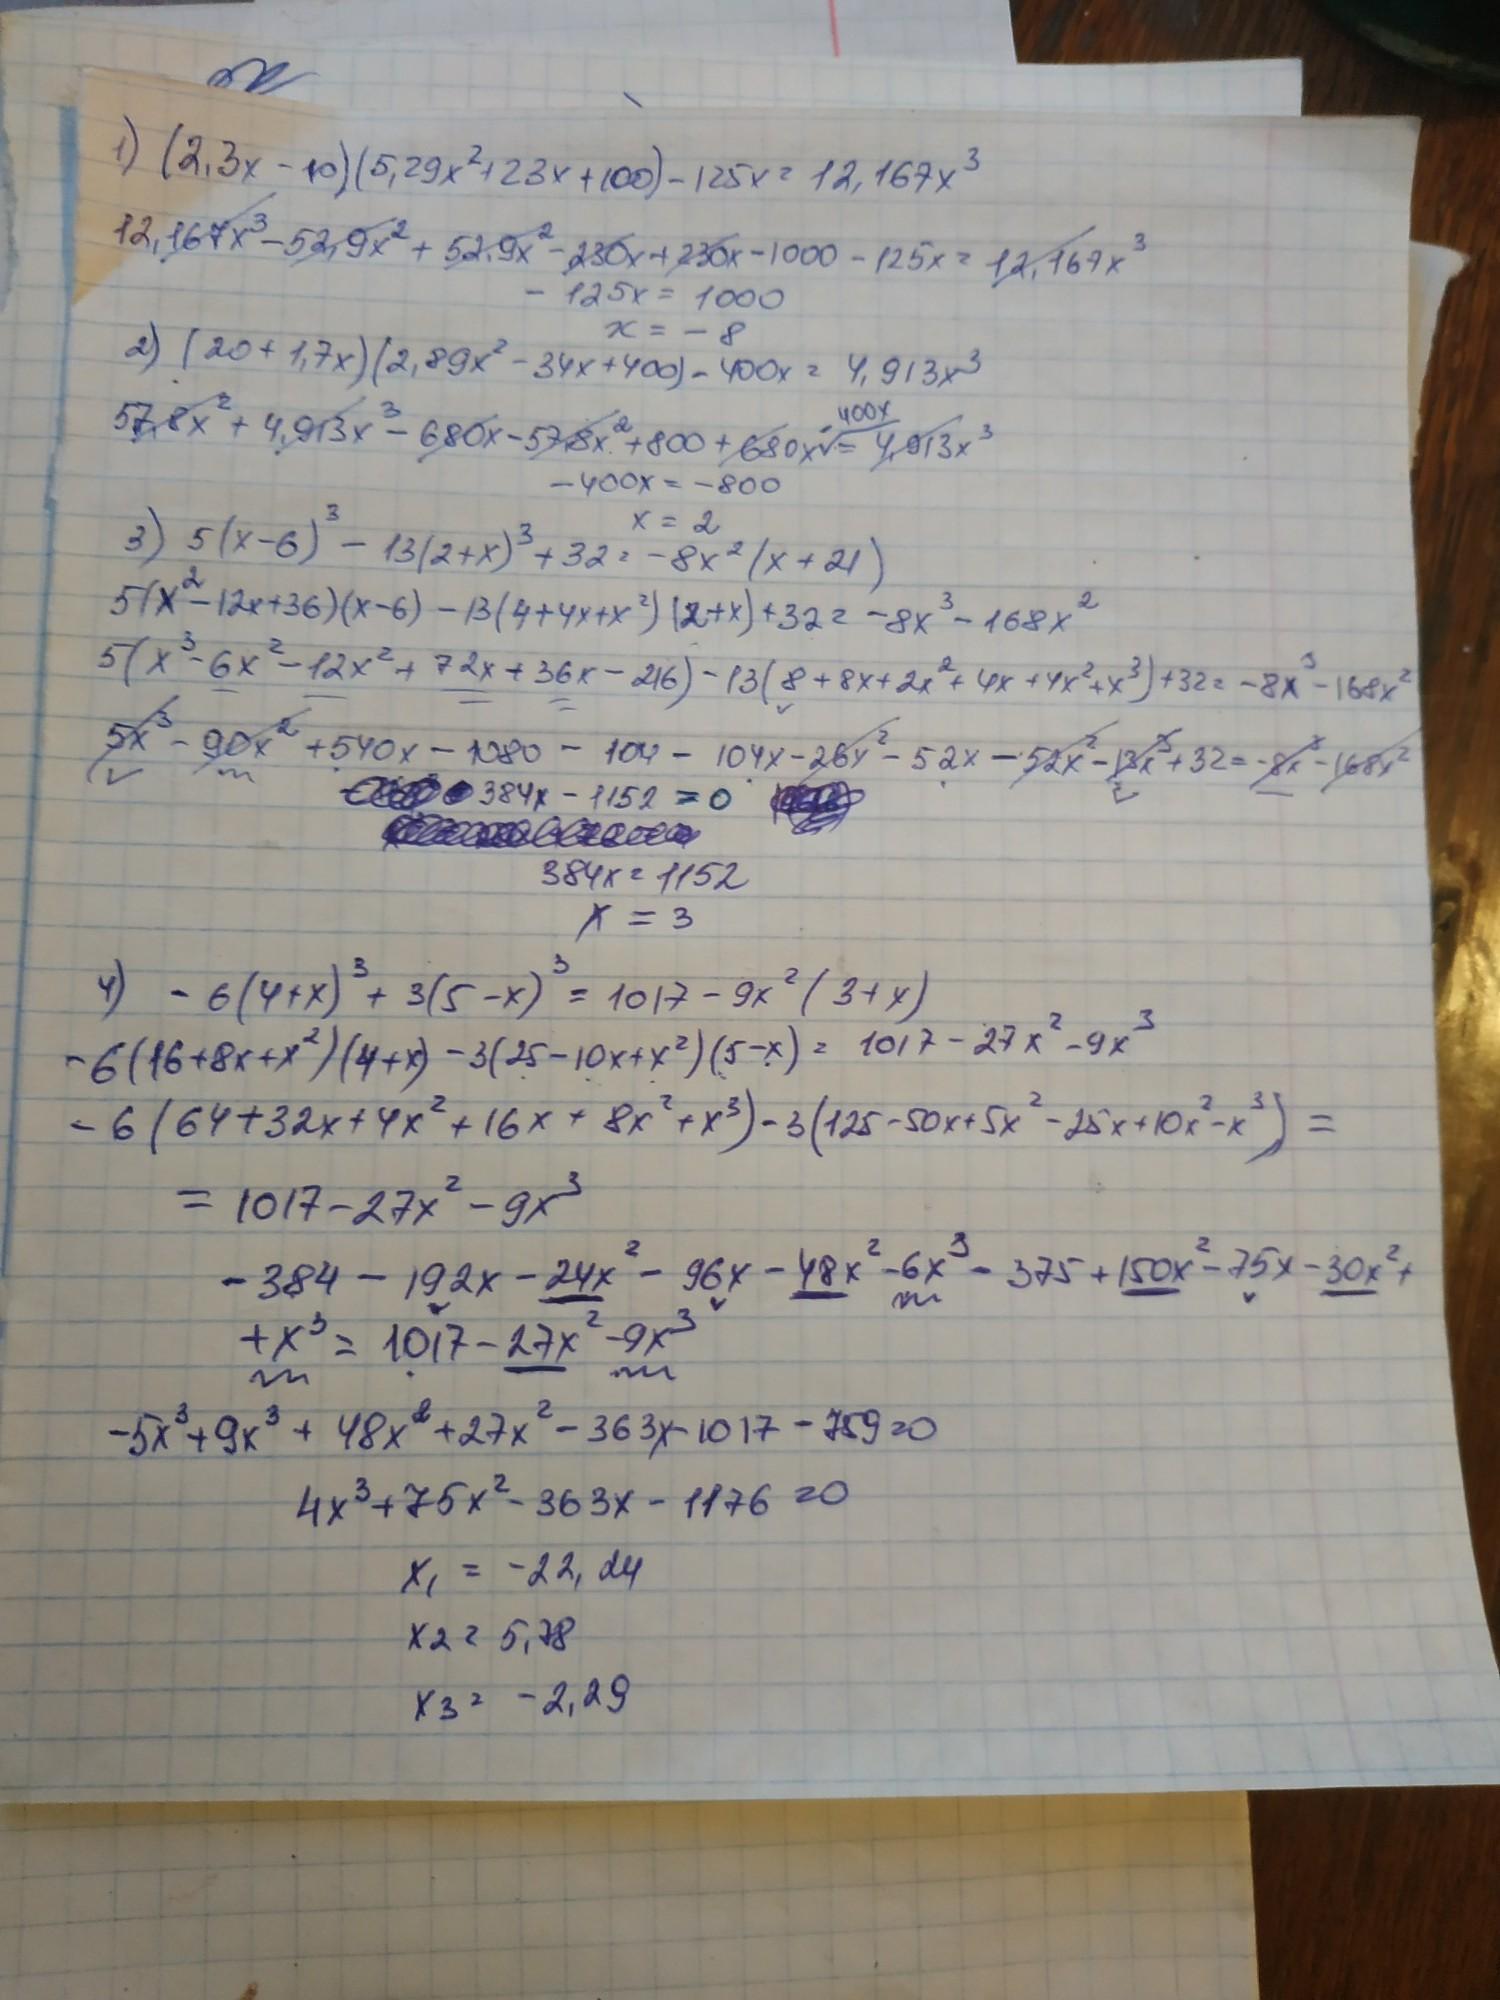 1) (2,3x - 10)(5,29x² + 23x + 100) - 125x = 12,167x³
12,167x³ - 52,9x² + 52,9x² - 230x + 230x - 1000 - 125x = 12,167x³
- 125x = 1000
x = - 8
2) (20 + 1,7x)(2,89x² - 34x + 400) - 400x = 4,913x³
57,8x² + 4,913x³ - 680x - 57,8x² + 800 + 680x - 400x = 4,913x³
- 400x = - 800
x = 2
3) 5(x - 6)³ - 13(2 + x)³ + 32 = - 8x²(x + 21)
5(x² - 12x + 36)(x - 6) - 13(4 + 4x + x²)(2 + x) + 32 = - 8x³ - 168x²
5(x³ - 6x² - 12x² + 72x + 36x - 216) - 13(8 + 8x + 2x² + 4x + 4x² + x³) + 32 = - 8x³ - 168x²
5x³ - 90x² + 540x - 1080 - 104 - 104x - 26x² - 52x - 52x² - 13x³ + 32 = - 8x³ - 168x²
384x - 1152 = 0
384x = 1152
x = 3
4) - 6(4 + x)³ + 3(5 - x)³ = 1017 - 9x²(3 + x)
- 6(16 + 8x + x²)(4 + x) - 3(25 - 10x + x²)(5 - x) = 1017 - 27x² - 9x³
- 6(64 + 32x + 4x² + 16x + 8x² + x³) - 3(125 - 50x + 5x² - 25x + 10x² - x³) =
= 1017 - 27x² - 9x³
- 384 - 192x - 24x² - 96x - 48x² - 6x³ - 375 + 150x² - 75x - 30x² +
+ x³ = 1017 - 27x² - 9x³
- 5x³ + 9x³ + 48x² + 27x² - 363x - 1017 - 759 = 0
4x³ + 75x² - 363x - 1176 = 0
x₁ = - 22,24
x₂ = 5,78
x₃ = - 2,29